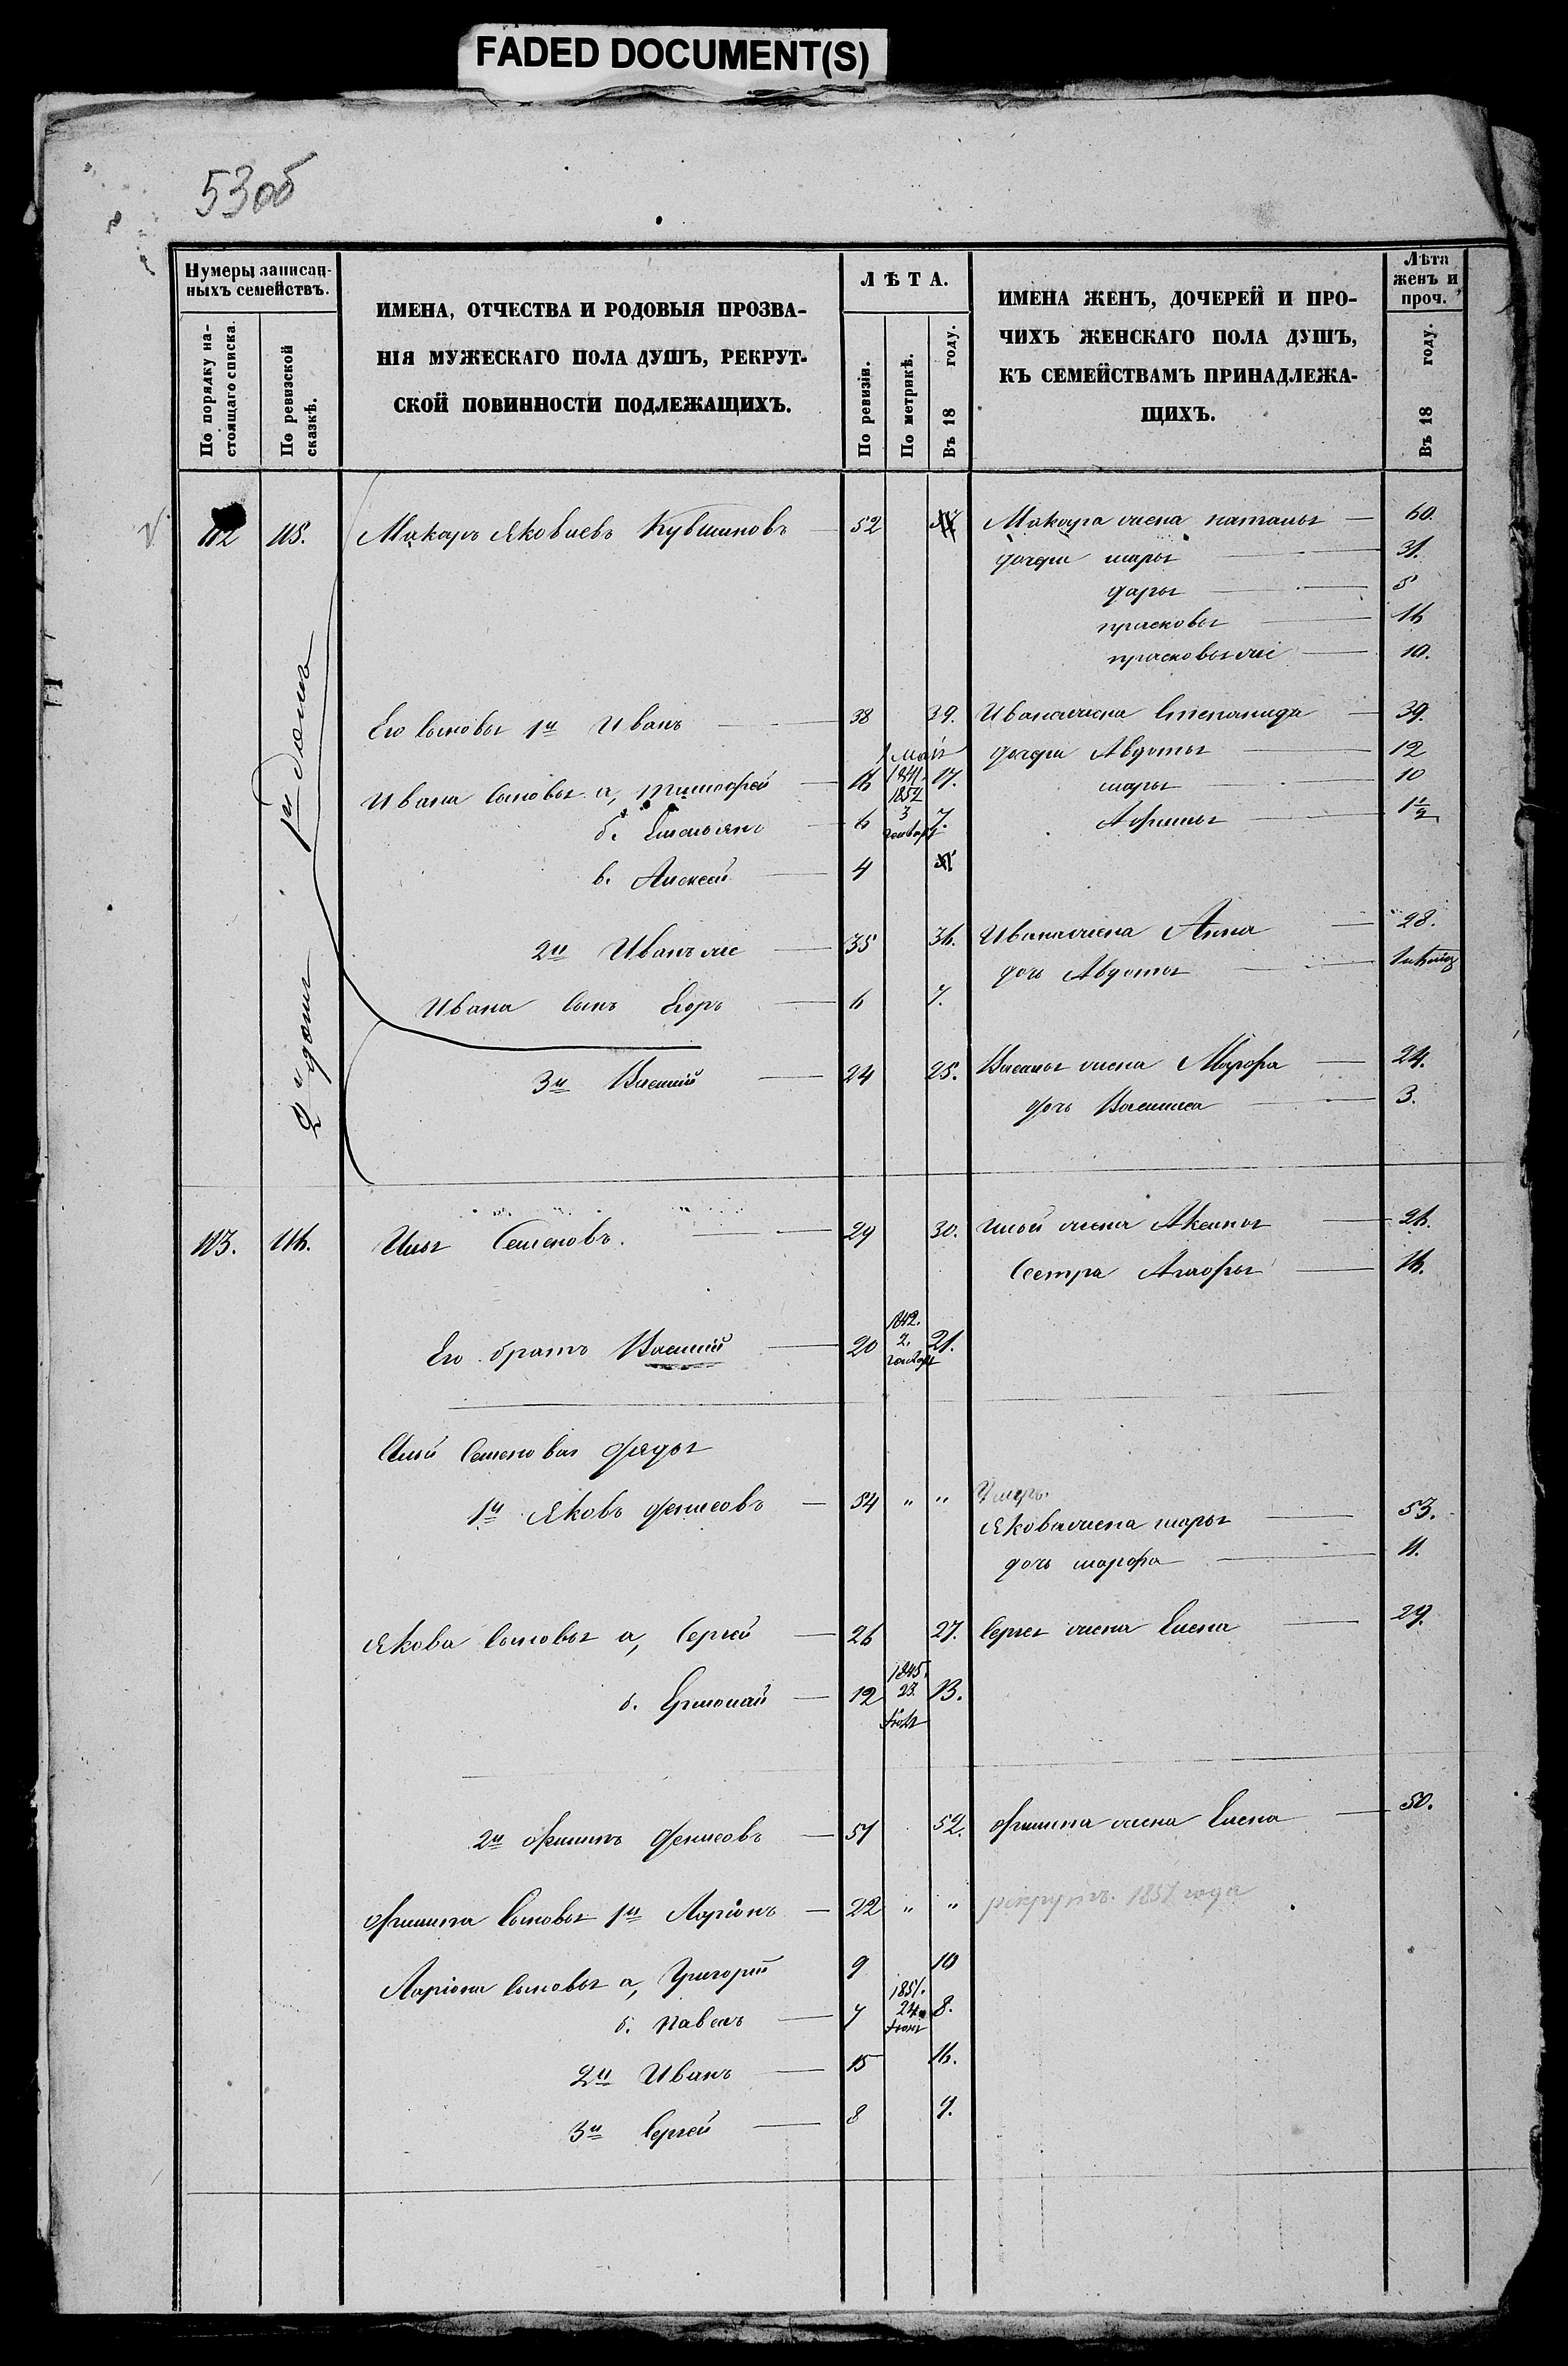 FADED DOCUMENT(S)
53об
Нумеры записан-
ныхъ семействъ.
По порядку на-
стоящаго списка.
По ревизской
сказкѣ.
ИМЕНА, ОТЧЕСТВА И РОДОВЫЯ ПРОЗВА-
НІЯ МУЖЕСКАГО ПОЛА ДУШЪ, РЕКРУТ-
СКОЙ ПОВИННОСТИ ПОДЛЕЖАЩИХЪ.
ЛѢТА.
По ревизіи.
По метрикѣ.
Въ 18 году.
ИМЕНА ЖЕНЪ, ДОЧЕРЕЙ И ПРО-
ЧИХЪ ЖЕНСКАГО ПОЛА ДУШЪ,
КЪ СЕМЕЙСТВАМЪ ПРИНАДЛЕЖА-
ЩИХЪ.
Лѣта
женъ и
проч.
Въ 18 году.
112 115. Макаръ Яковлевъ Кувшиновъ — 52 Макара жена наталья — 60.
дочери марья — 31.
дарья —
прасковья — 16
прасковья же — 10.
1й домъ
Его сыновья 1й Иванъ — 38 39. Ивана жена Степанида — 39.
дочери Авдотья — 12
Ивана сыновья а, тимофей — 16 1 мая 1841. 17. марья — 10
б. Емельянъ — 6 1852 3 генваря 7. Афимья — 1 1/2
в. Алексей — 4
2й Иванъ же — 35 36. Ивана жена Анна — 28.
дочь Авдотья —
Ивана сынъ Егоръ — 6 7.
2й домъ
3й Василий — 24 25. Василья жена Марфа — 24.
дочь Василиса — 3.
113. 116. Илья Семеновъ. — 29 30. Ильи жена Аксинья — 26.
Сестра Агафья — 16.
Его братъ Василий — 20 1842. 2. генваря 21.
Ильи Семенова дядья
1й Яковъ Денисовъ — 54 " " Умеръ.
Якова жена марья — 53.
дочь марфа — 11.
Якова сыновья а, Сергей — 26 27. Сергея жена Елена — 29.
б. Ермолай — 12 1845. 23. 13.
2й Филипъ Денисовъ — 51 52. Филипа жена Елена — 50.
Филипа сыновья 1й Ларіонъ — 22 " " рекрутъ. 1857 года
Ларіона сыновья а, Григорий 9 10
б. Павелъ — 7 1851. 24. 8.
2й Иванъ — 15 16.
3й Сергей — 8 9.